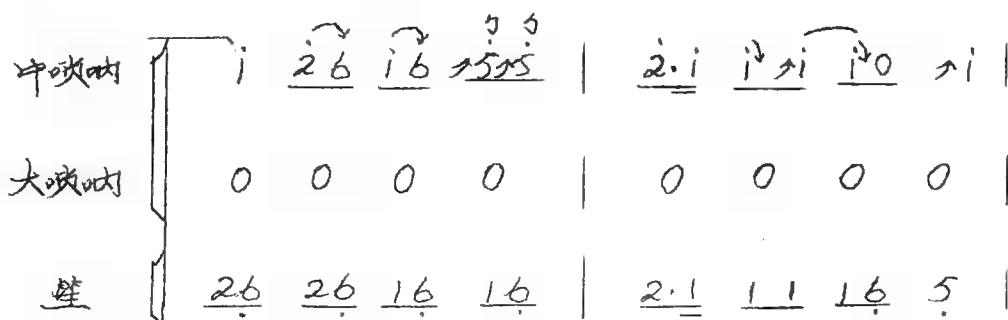 中唢呐 i 2̇6 i6 ↗5̇↗5̇ | 2̇·i i↗i i0 ↗i |
大唢呐 0 0 0 0 | 0 0 0 0 |
笙 26̣ 26̣ 16̣ 16̣ | 2·1 11 16̣ 5̣